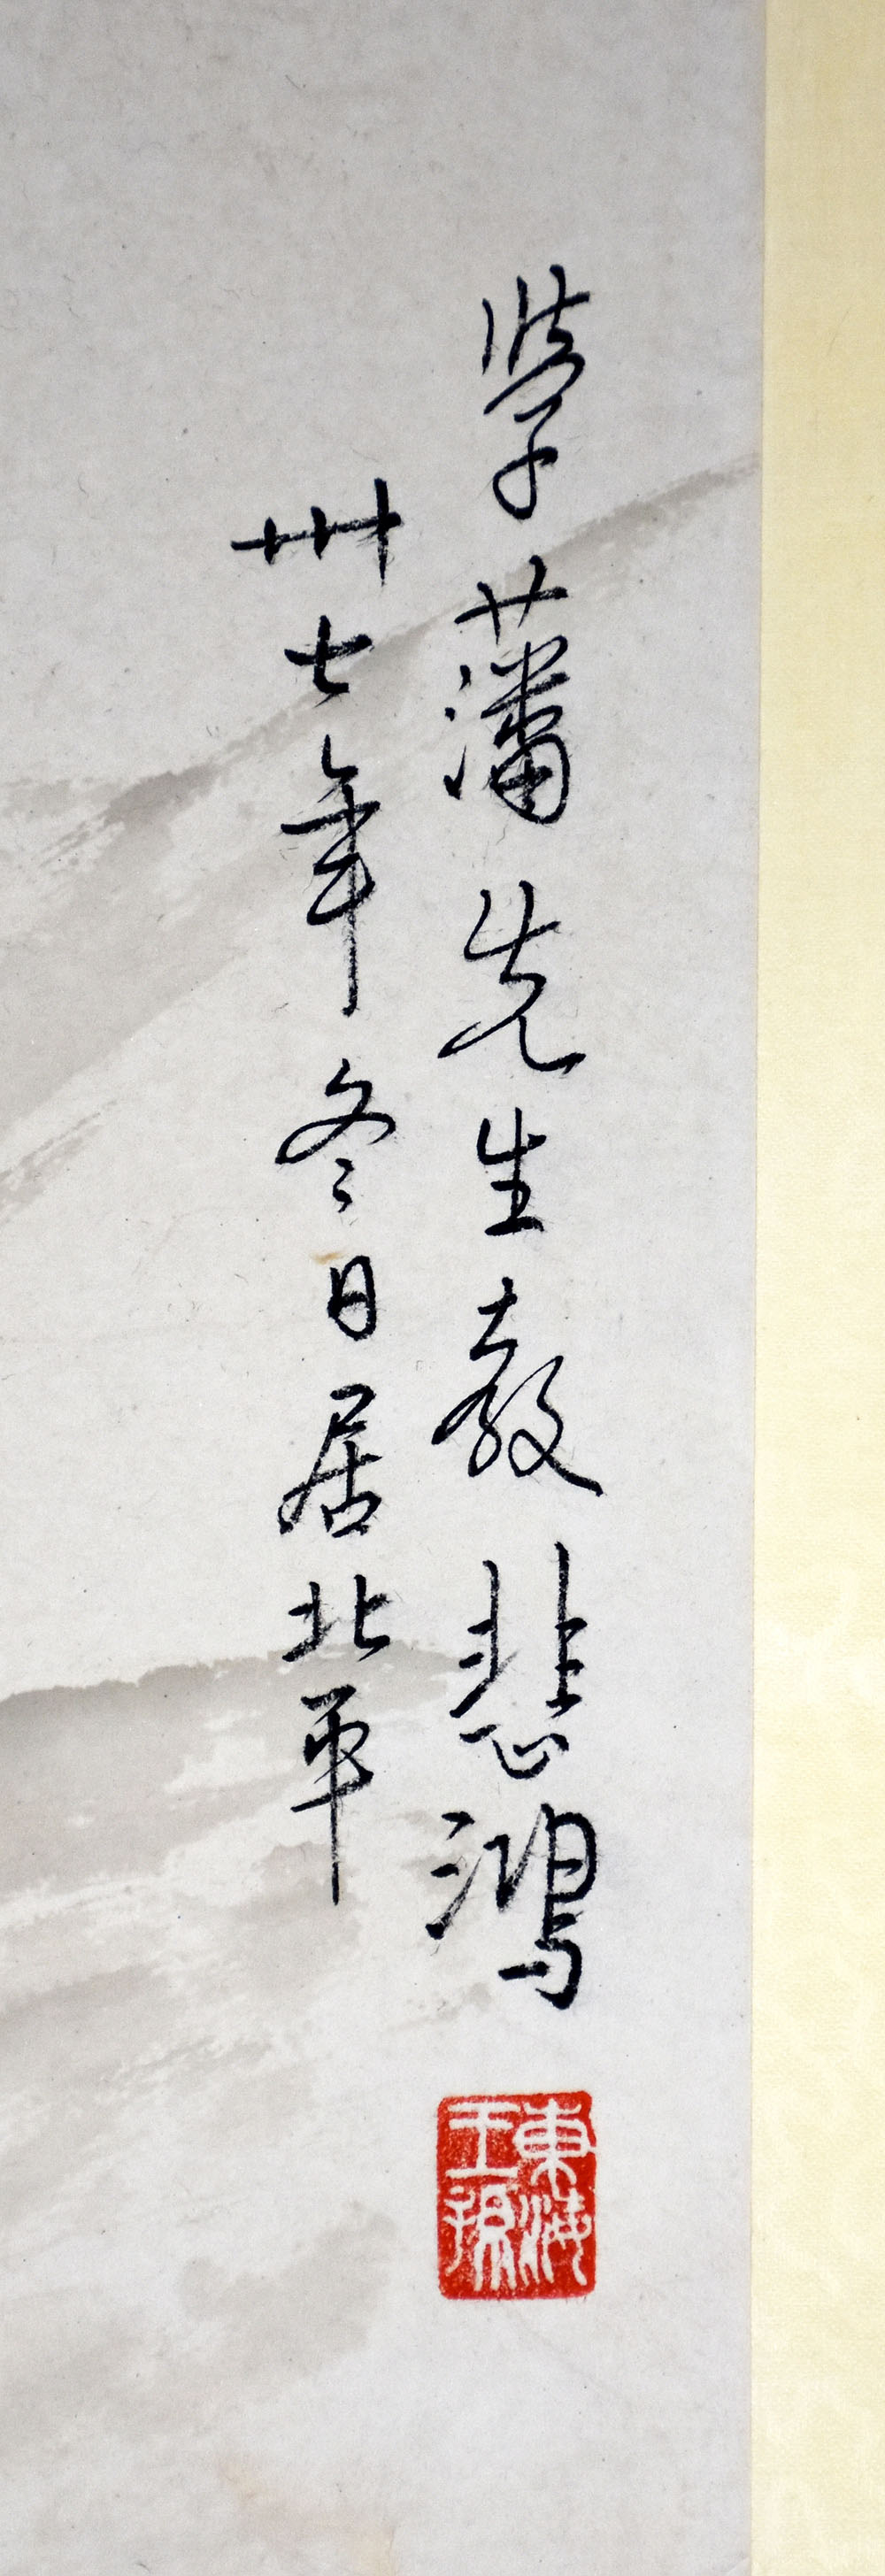 學藩先生教 悲鴻
卅七年冬日居北平
東海王孫